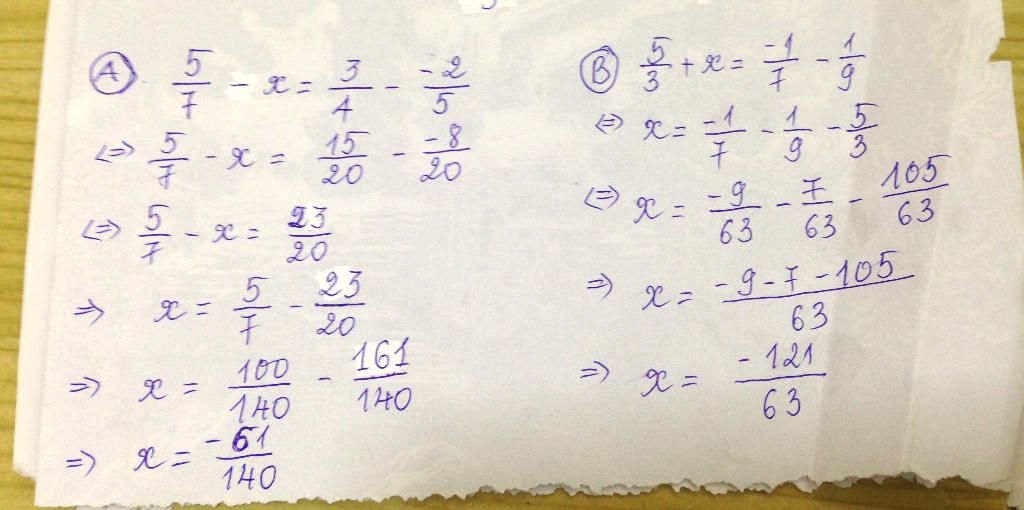 Ⓐ 5/7 - x = 3/4 - -2/5
<=> 5/7 - x = 15/20 - -8/20
<=> 5/7 - x = 23/20
=> x = 5/7 - 23/20
=> x = 100/140 - 161/140
=> x = -61/140
Ⓑ 5/3 + x = -1/7 - 1/9
<=> x = -1/7 - 1/9 - 5/3
<=> x = -9/63 - 7/63 - 105/63
=> x = -9-7-105/63
=> x = -121/63